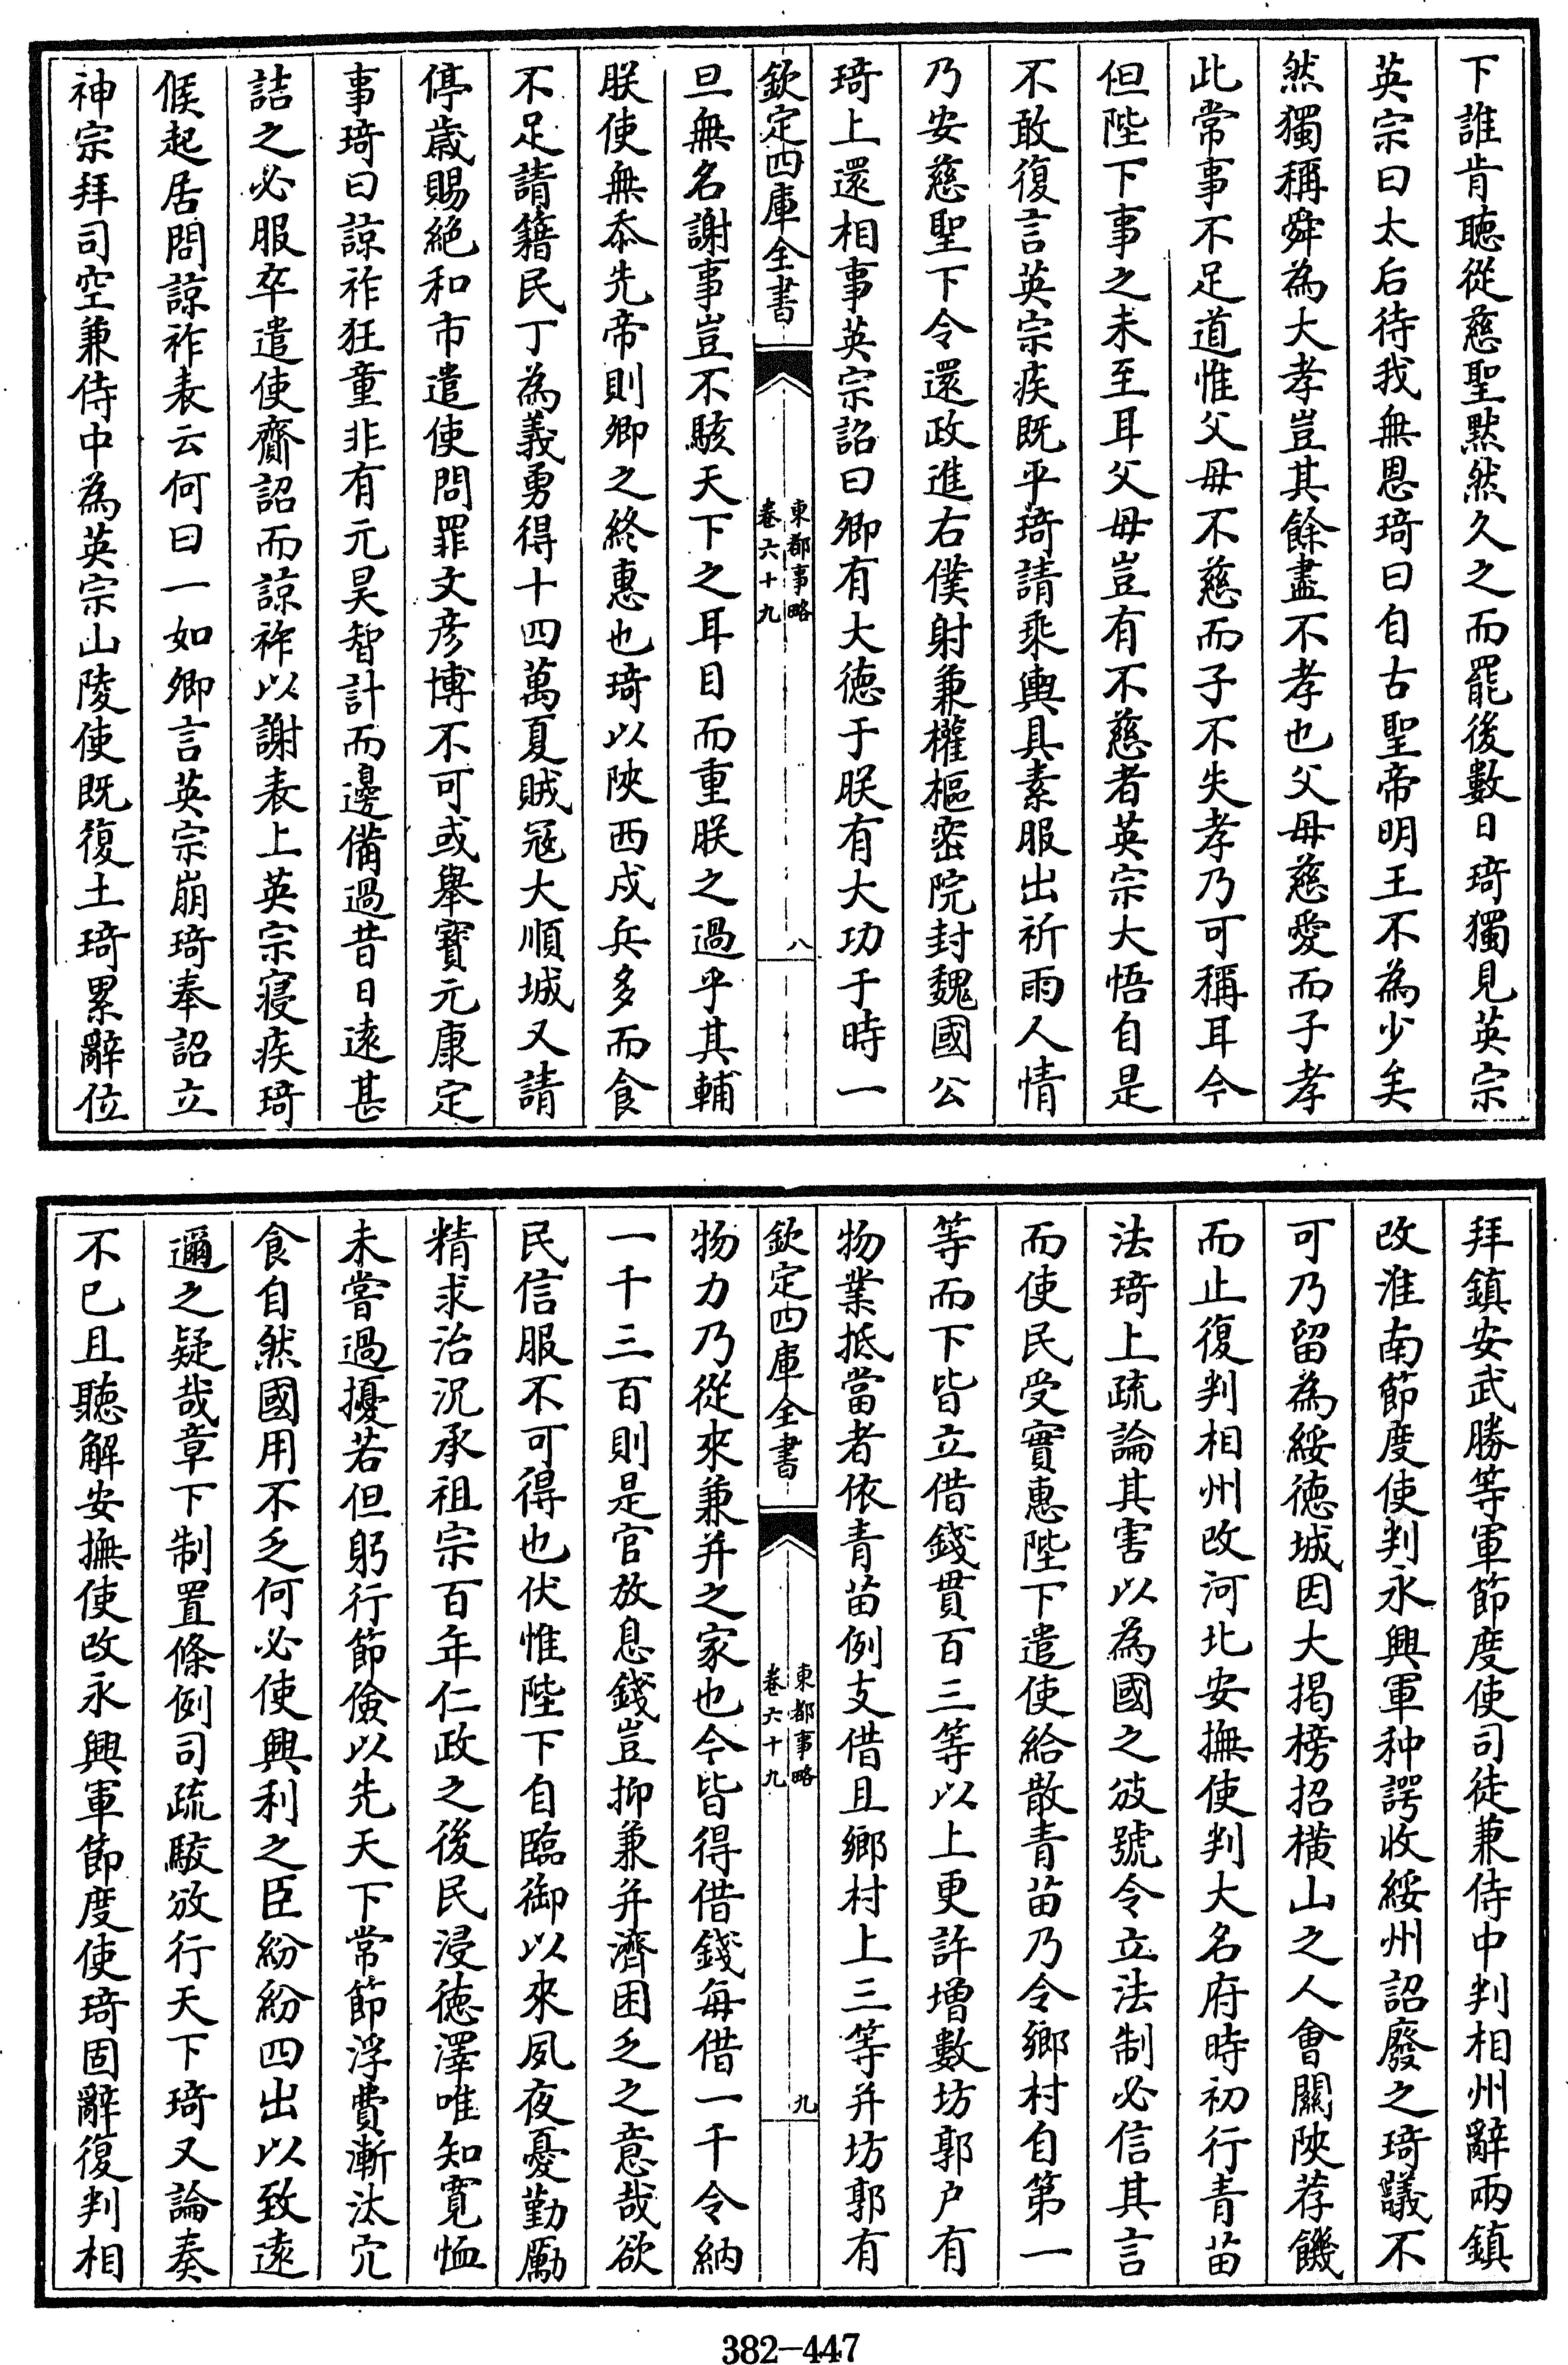 下誰肯聽從慈聖黙然久之而罷後數日琦獨見英宗
英宗曰太后待我無恩琦曰自古聖帝明王不為少矣
然獨稱舜為大孝豈其餘盡不孝也父母慈愛而子孝
此常事不足道惟父母不慈而子不失孝乃可稱耳今
但陛下事之未至耳父母豈有不慈者英宗大悟自是
不敢復言英宗疾既平琦請乘輿具素服出祈雨人情
乃安慈聖下令還政進右僕射兼權樞密院封魏國公
琦上還相事英宗詔曰卿有大徳于朕有大功于時一
欽定四庫全書
東都事略
卷六十九
八
旦無名謝事豈不駭天下之耳目而重朕之過乎其輔
朕使無忝先帝則卿之終惠也琦以陜西戍兵多而食
不足請籍民丁為義勇得十四萬夏賊冦大順城又請
停歳賜絶和市遣使問罪文彦博不可或舉寶元康定
事琦曰諒祚狂童非有元昊智計而邊備過昔日逺甚
詰之必服卒遣使齎詔而諒祚以謝表上英宗寢疾琦
候起居問諒祚表云何曰一如卿言英宗崩琦奉詔立
神宗拜司空兼侍中為英宗山陵使既復土琦累辭位
拜鎮安武勝等軍節度使司徒兼侍中判相州辭兩鎮
改淮南節度使判永興軍种諤收綏州詔廢之琦議不
可乃留為綏徳城因大揭榜招横山之人會關陜荐饑
而止復判相州改河北安撫使判大名府時初行青苗
法琦上疏論其害以為國之㳒號令立法制必信其言
而使民受實惠陛下遣使給散青苗乃令鄉村自第一
等而下皆立借錢貫百三等以上更許増數坊郭户有
物業抵當者依青苗例支借且鄉村上三等并坊郭有
欽定四庫全書
東都事略
卷六十九
九
物力乃從來兼并之家也今皆得借錢每借一千令納
一千三百則是官放息錢豈抑兼并濟困乏之意哉欲
民信服不可得也伏惟陛下自臨御以來夙夜憂勤勵
精求治況承祖宗百年仁政之後民浸徳澤唯知寛恤
未嘗過擾若但躬行節儉以先天下常節浮費漸汰冗
食自然國用不乏何必使興利之臣紛紛四出以致逺
邇之疑哉章下制置條例司疏駮放行天下琦又論奏
不已且聽解安撫使改永興軍節度使琦固辭復判相
382-447